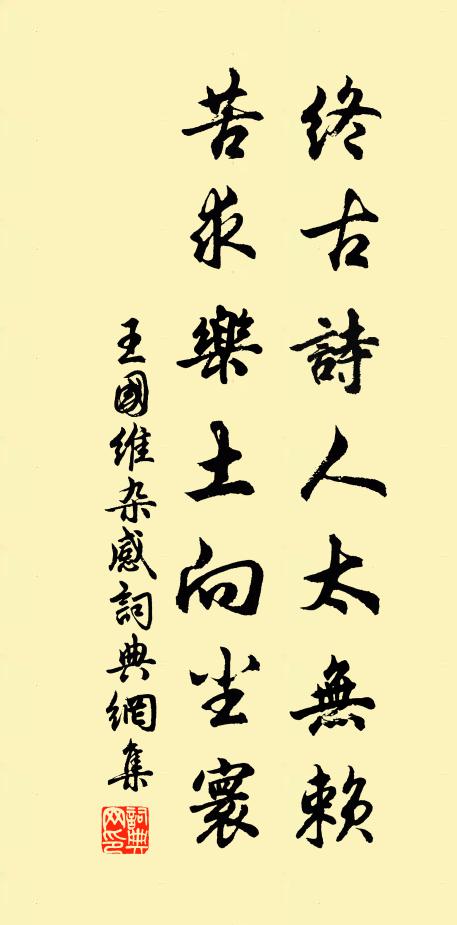 終古詩人太無賴
苦求樂土向尘寰
王國維杂感詞典網集
詞典網印